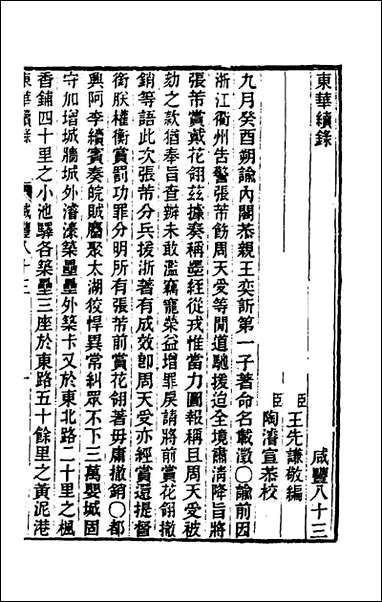 東華續錄　咸豐八十三
臣王先謙敬編
臣陶濬宣恭校
九月癸酉朔諭內閣恭親王奕訢第一子著命名載澂〇諭前因
浙江衢州告警張芾飭周天受等閒道馳援迨全境肅清降旨將
張芾賞戴花翎茲據奏稱墨絰從戎惟當力圖報稱且周天受被
劾之款猶奉旨查辦未敢濫竊寵榮益增罪戾請將前賞花翎撤
銷等語此次張芾分兵援浙著有成效卽周天受亦經賞還提督
銜朕權衡賞罰功罪分明所有張芾前賞花翎著毋庸撤銷〇都
興阿李續賓奏皖賊麕聚太湖狡悍異常糾眾不下三萬嬰城固
守加增城牆城外濬濠築壘壘外築卡又於東北路二十里之楓
香鋪四十里之小池驛各築壘三座於東路五十餘里之黃泥港
東華續錄　咸豐八十三　一